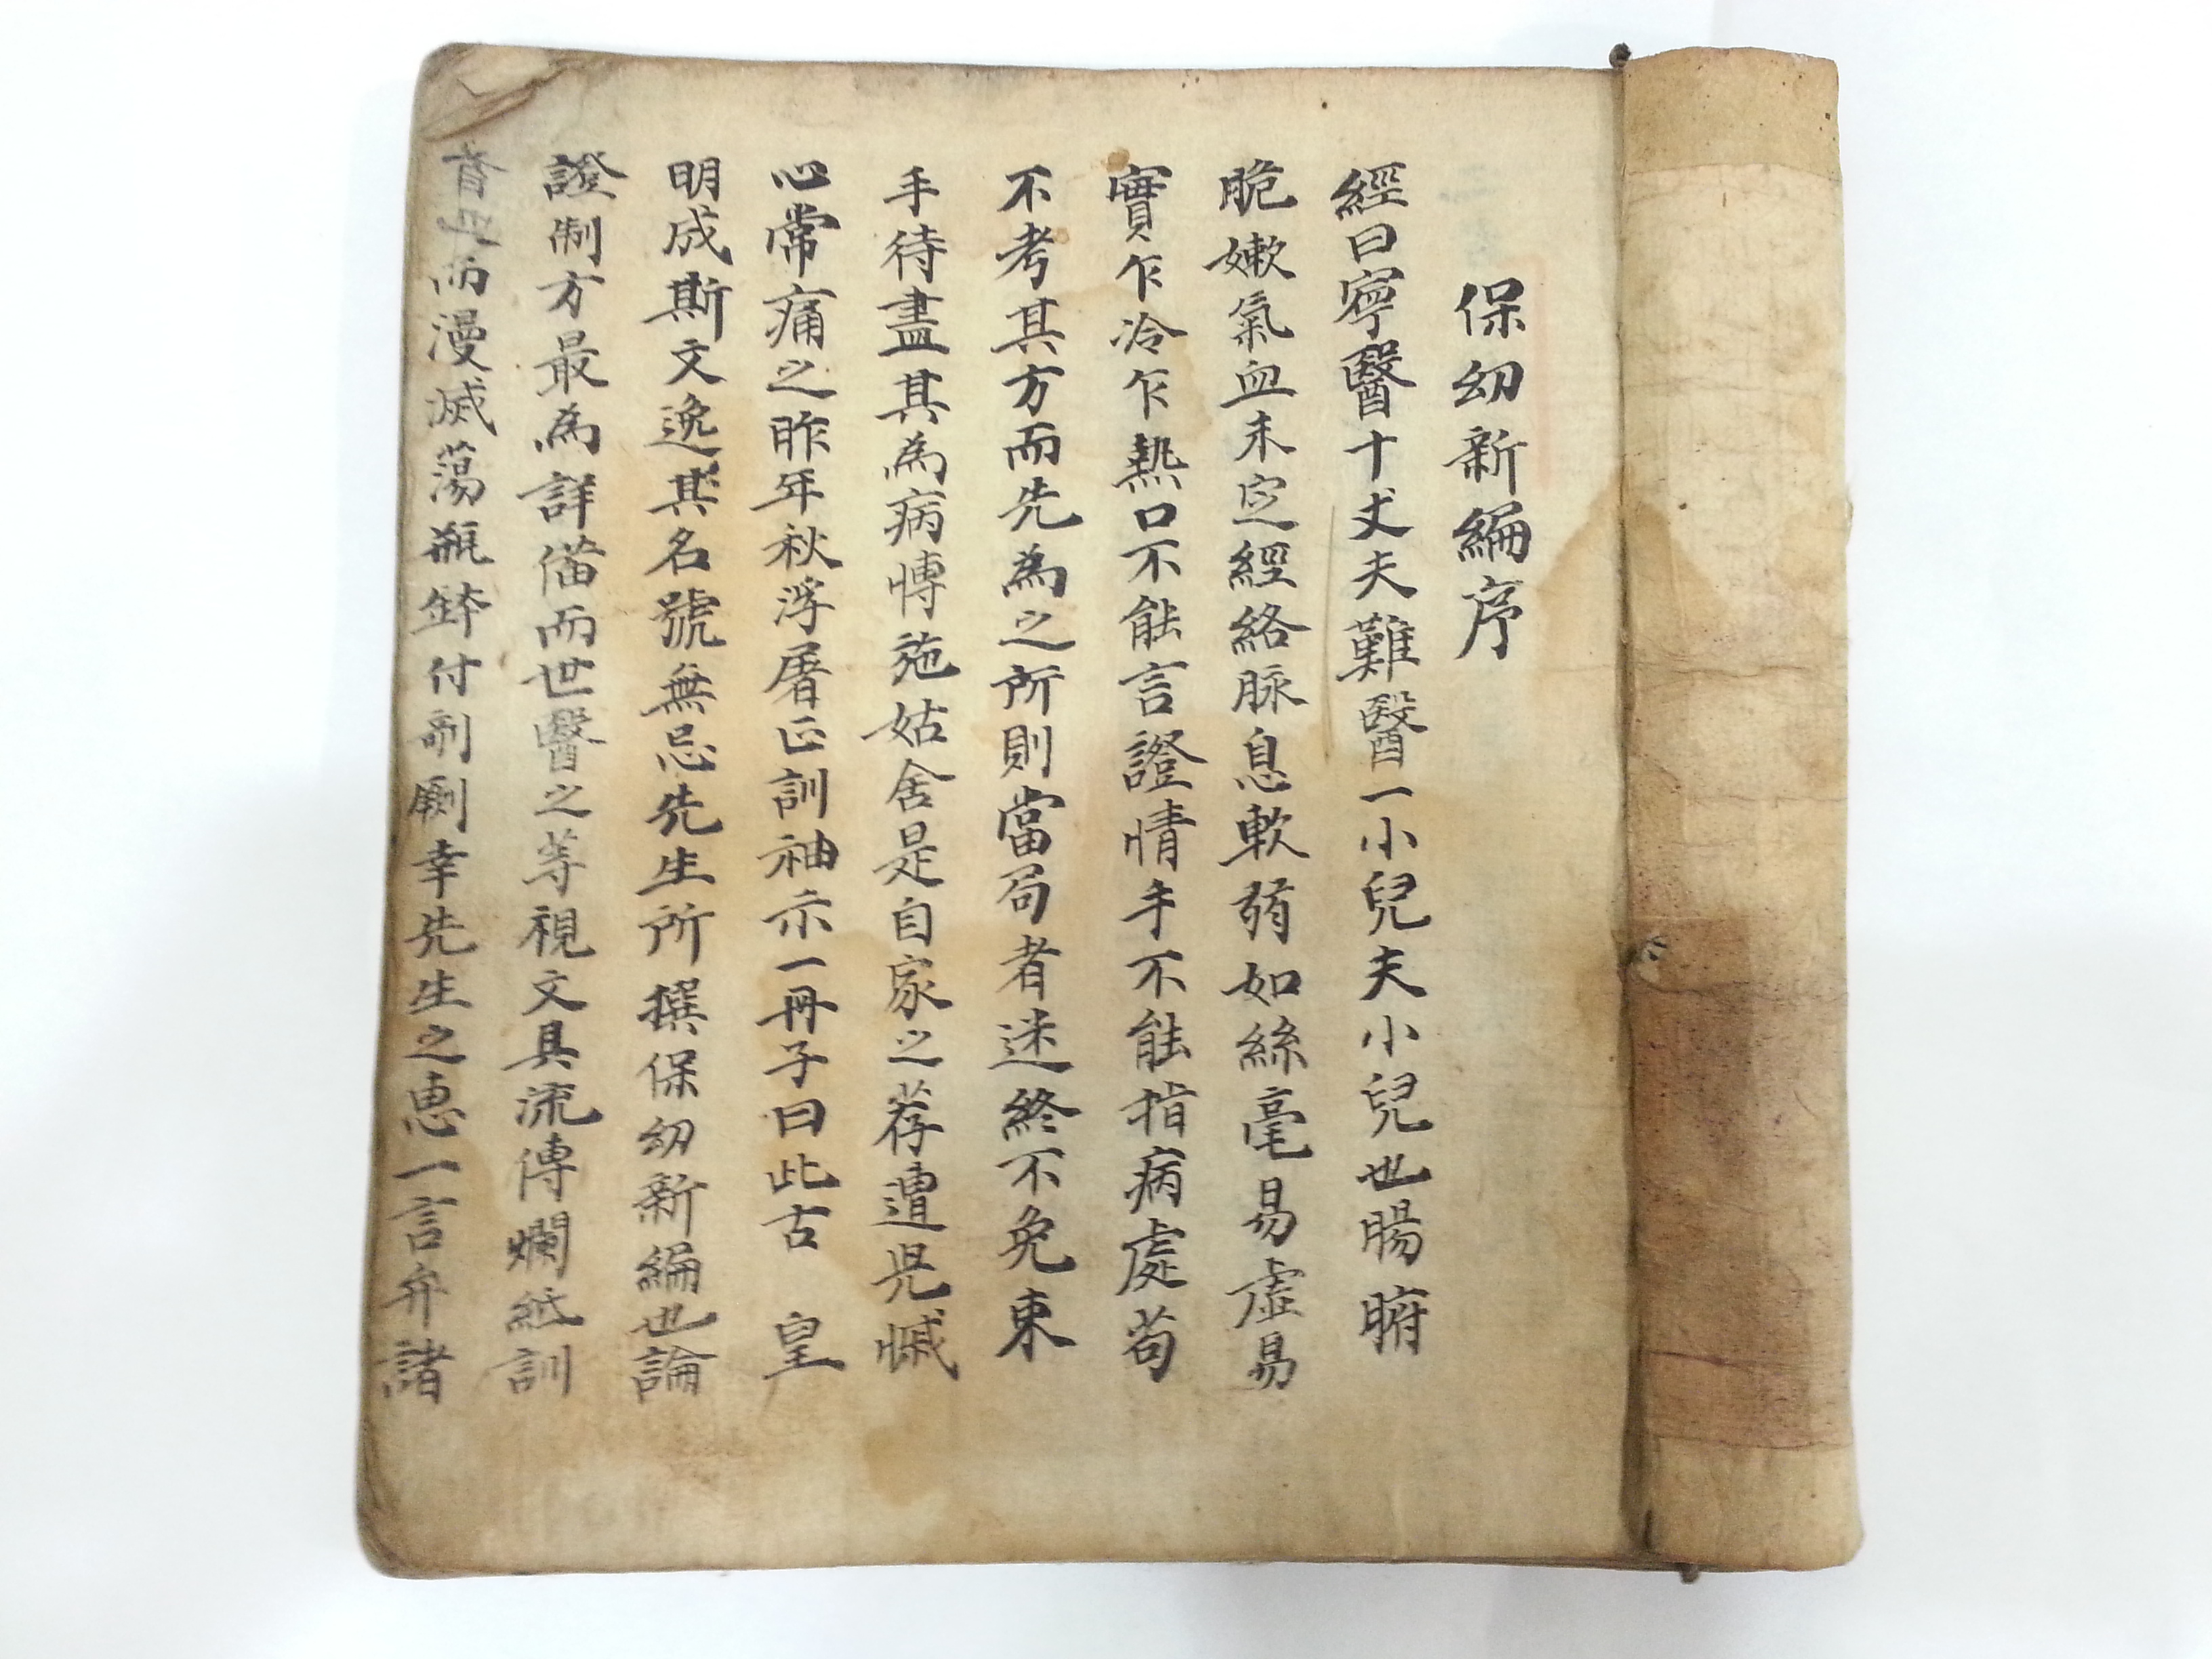 保幼新編序
經曰寧醫十丈夫難醫一小兒夫小兒也腸腑
脆嫰氣血未定經絡脉息軟弱如絲毫易虛易
實乍冷乍熱口不能言證情手不能指病處苟
不考其方而先為之所則當局者迷終不免束
手待盡其為病慱施姑舍是自家之荐遭兇慽
心常痛之昨年秋浮屠正訓袖示一冊子曰此古皇
明成斯文逸其名號無忌先生所撰保幼新編也論
證制方最為詳俻而世醫之等視文具流傳爛紙訓
而漫滅蕩瓶鉢付剞劂幸先生之恵一言弁諸